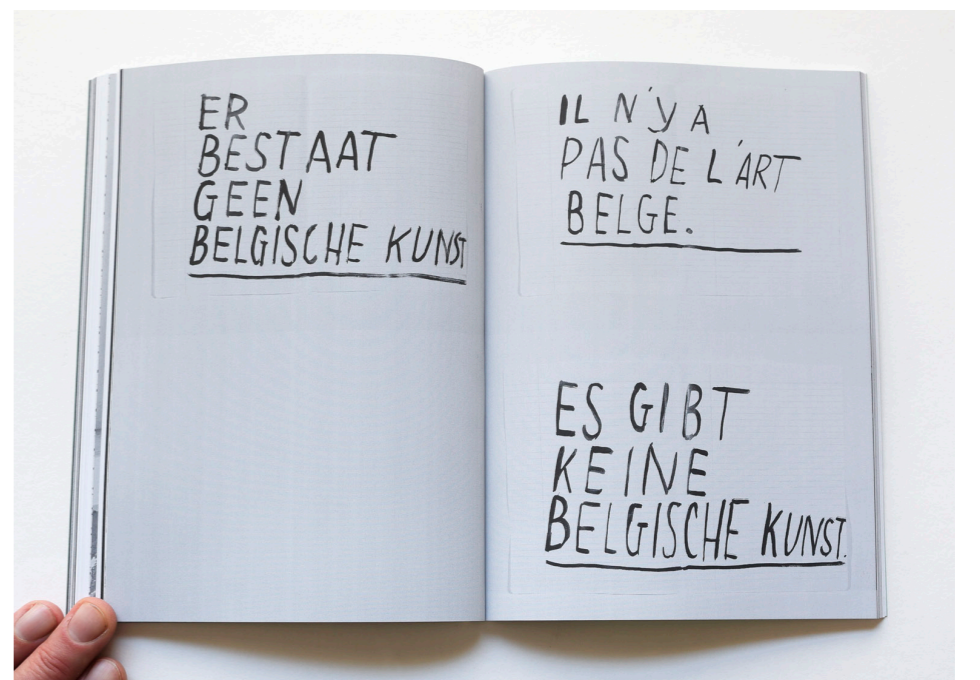 ER
BESTAAT
GEEN
BELGISCHE KUNST
IL N'Y A
PAS DE L'ART
BELGE.
ES GIBT
KEINE
BELGISCHE KUNST.